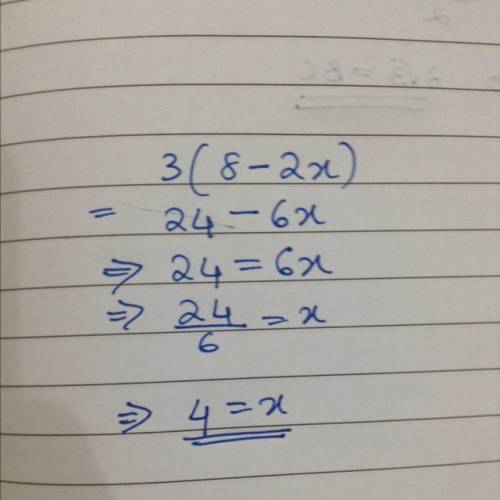 3(8-2x)
= 24-6x
⇒ 24=6x
⇒ 24/6=x
⇒ 4=x